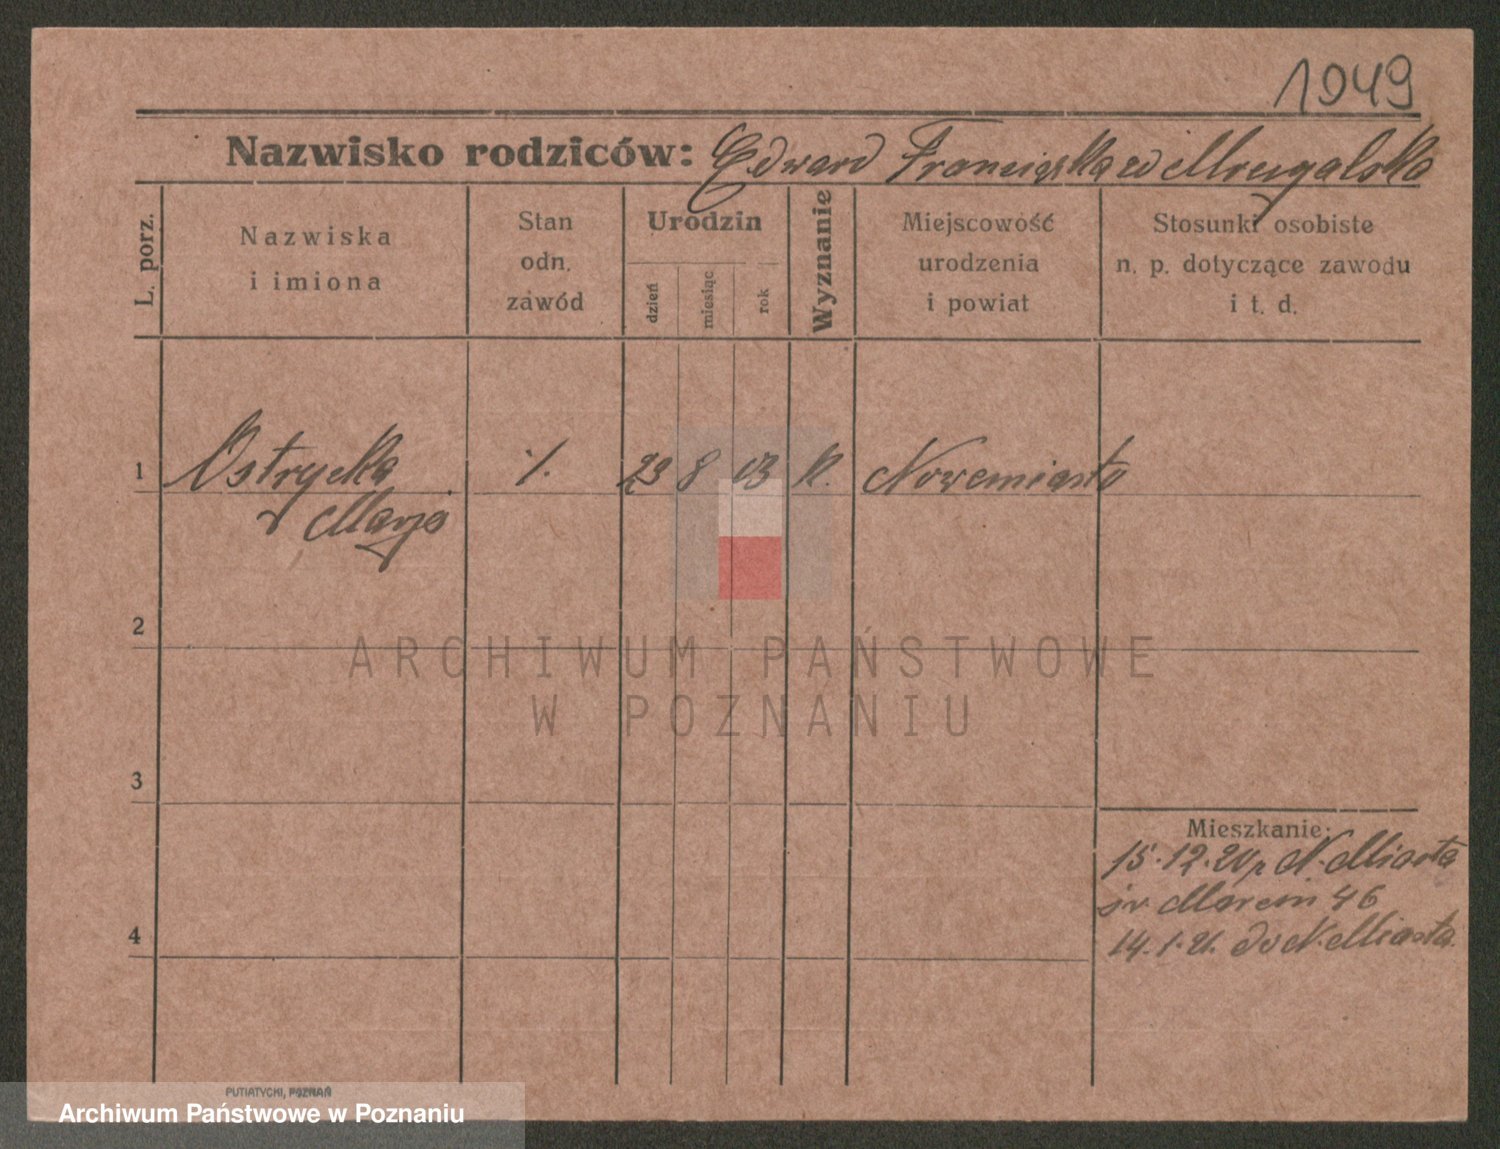 1949
Nazwisko rodziców: Edward Franciszka zd
L. porz.
Nazwiska
i imiona
Stan
odn.
zawód
Urodzin
dzień
miesiąc
rok
Wyznanie
Miejscowość
urodzenia
i powiat
Stosunki osobiste
n. p. dotyczące zawodu
i t. d.
1 Ostrycka ./. 29 8 13 k. Nowemiasto
Marja
2
ARCHIWUM PAŃSTWOWE
W POZNANIU
3
Mieszkanie:
15.12.20 N. Miasta
św Marcin 46
4
14.1.21. do N. Miasta.
PUTIATYCKI, POZNAŃ
Archiwum Państwowe w Poznaniu